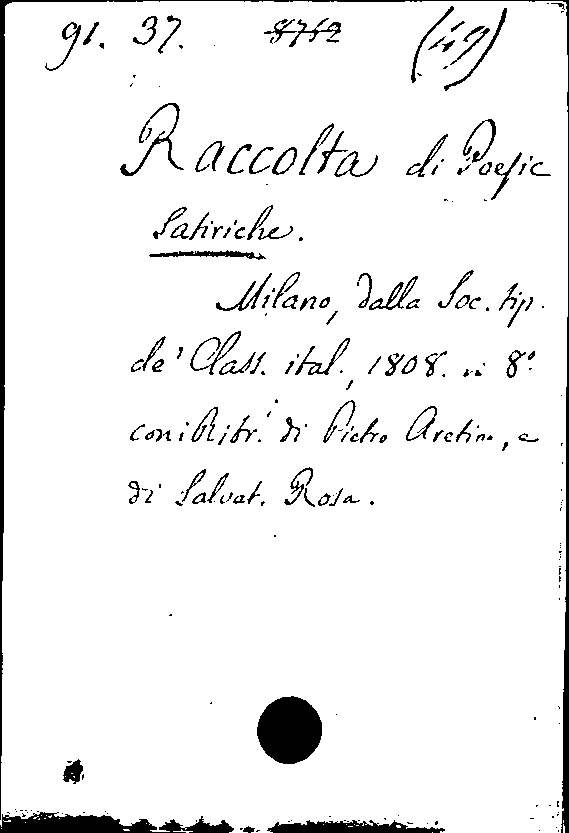 91. 37. 8762 (49)
Raccolta di Poesie
Satiriche.
Milano, dalla Soc. tip.
de' Class. ital., 1808. in 8°.
con i Ritr. di Pietro Aretino, e
di Salvat. Rosa.